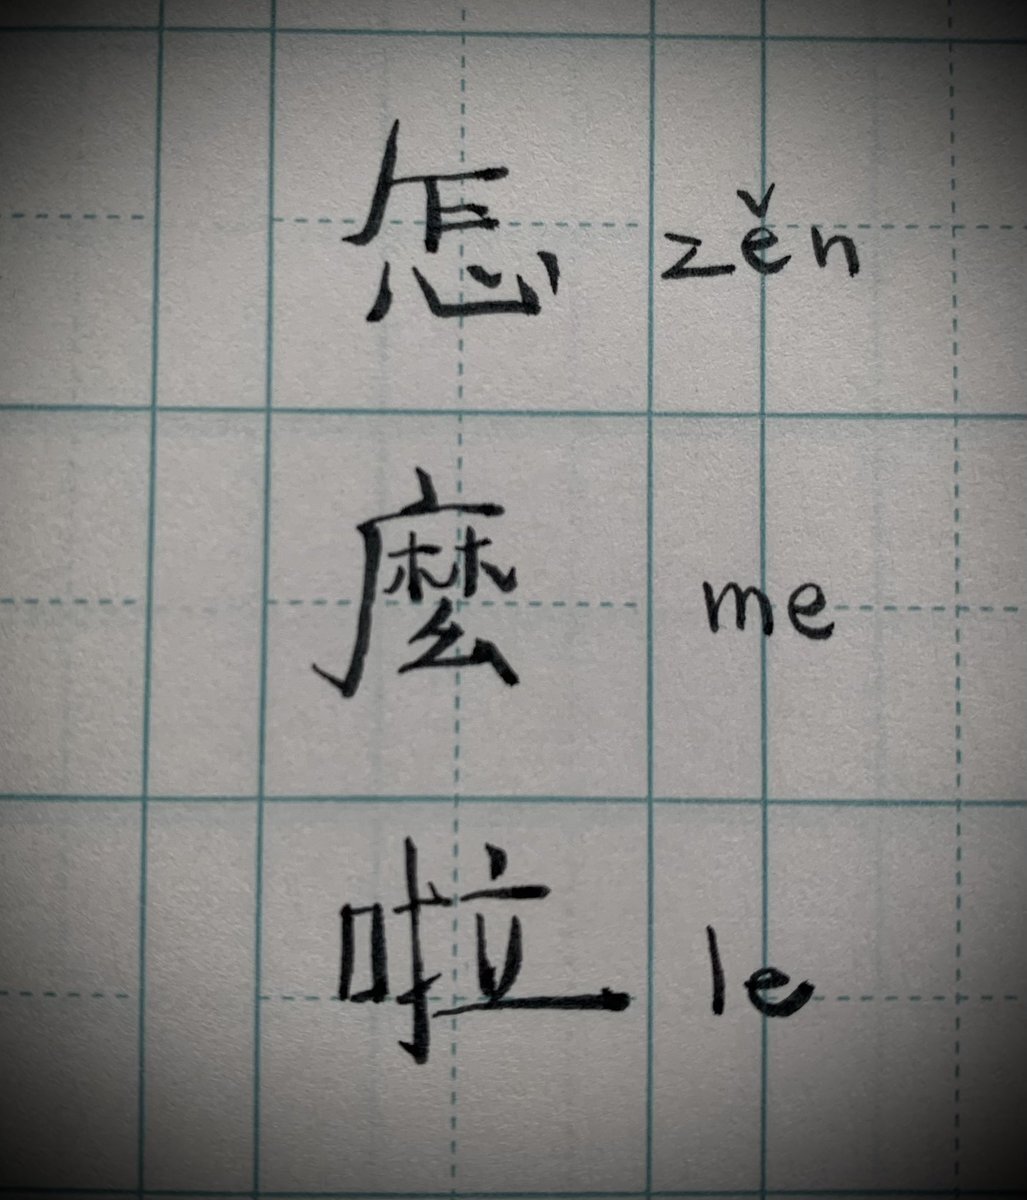 怎 zěn
麼 me
啦 le